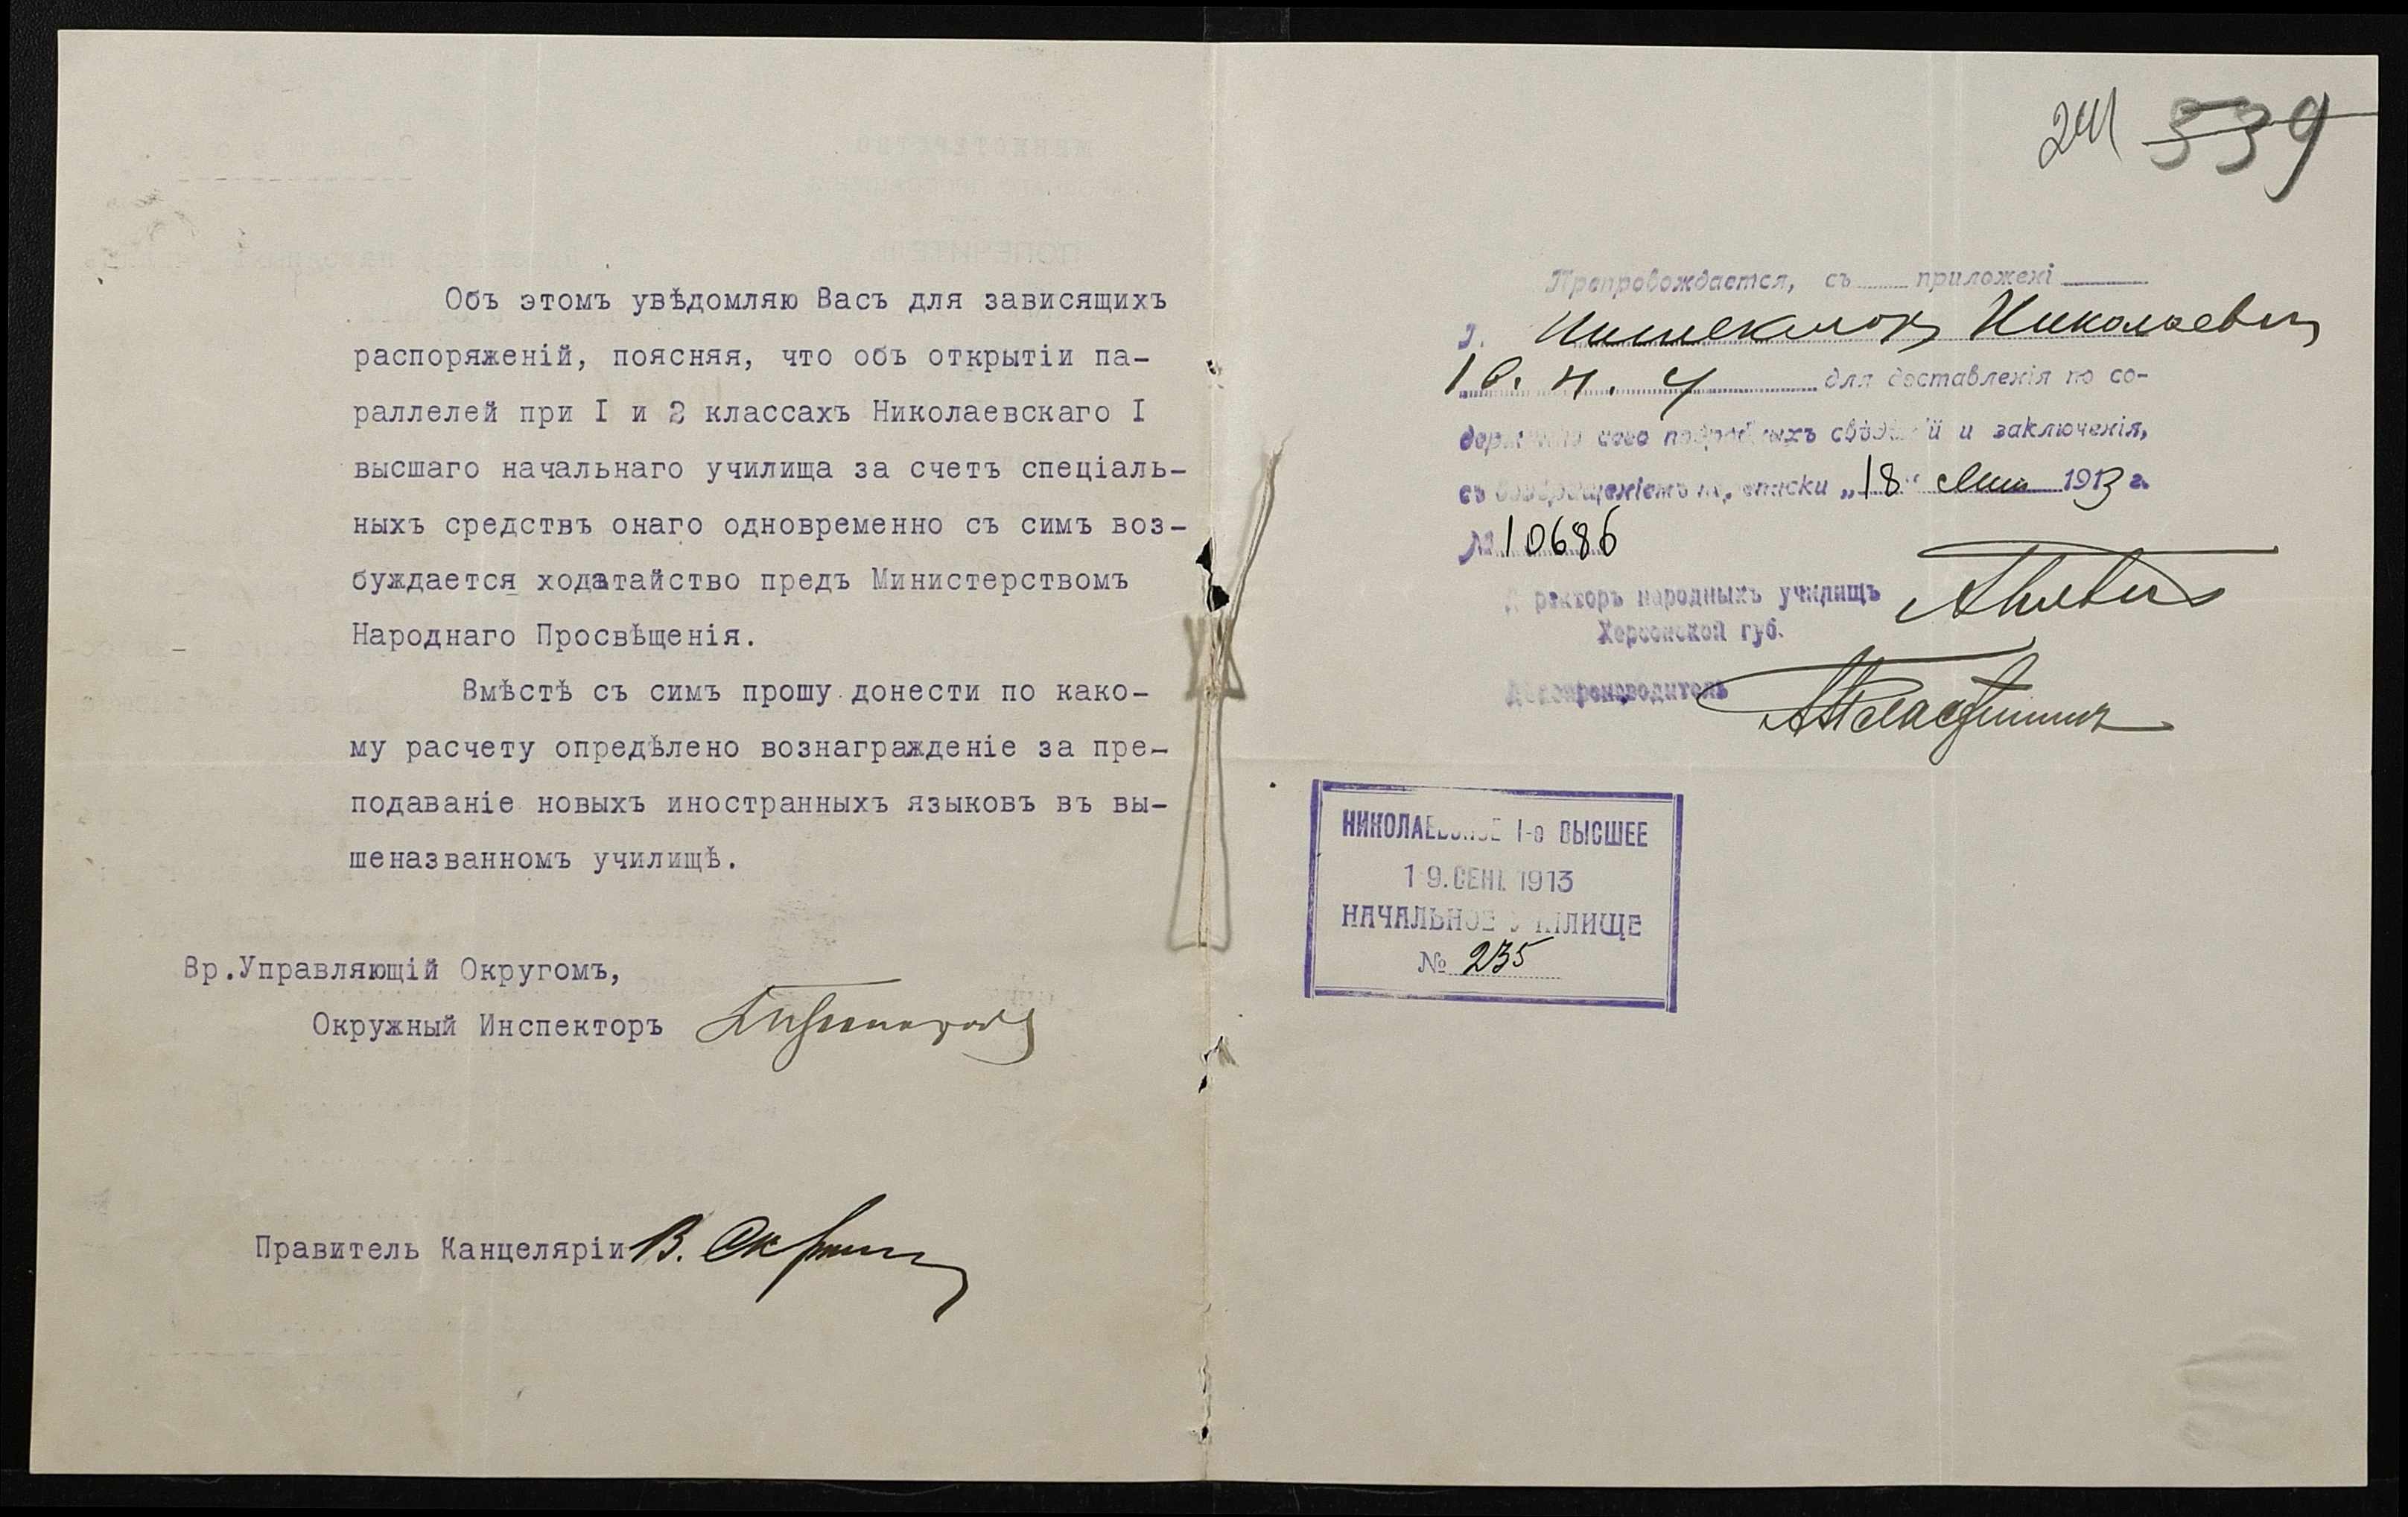 Объ этомъ увѣдомляю Васъ для зависящихъ
распоряженій, поясняя, что объ открытіи па-
раллелей при I и 2 классахъ Николаевскаго I
высшаго начальнаго училища за счетъ спеціаль-
ныхъ средствъ онаго одновременно съ симъ воз-
буждается ходатайство предъ Министерствомъ
Народнаго Просвѣщенія.
Вмѣстѣ съ симъ прошу донести по како-
му расчету опредѣлено вознагражденіе за пре-
подаваніе новыхъ иностранныхъ языковъ въ вы-
шеназванномъ училищѣ.
Вр.Управляющій Округомъ,
Окружный Инспекторъ
Правитель Канцеляріи В.
241 539
Препровождается, съ приложені
г. Инспектору Николаевск
1 в. н. у для доставленія по со-
держанію сего подробныхъ свѣдѣній и заключенія,
съ возвращеніемъ переписки „18" Сен 1913 г.
№ 10686
Директоръ народныхъ училищъ
Херсонской губ.
Дѣлопроизводитель
НИКОЛАЕВСКОЕ 1-е ВЫСШЕЕ
19.СЕН. 1913
НАЧАЛЬНОЕ УЧИЛИЩЕ
№ 235